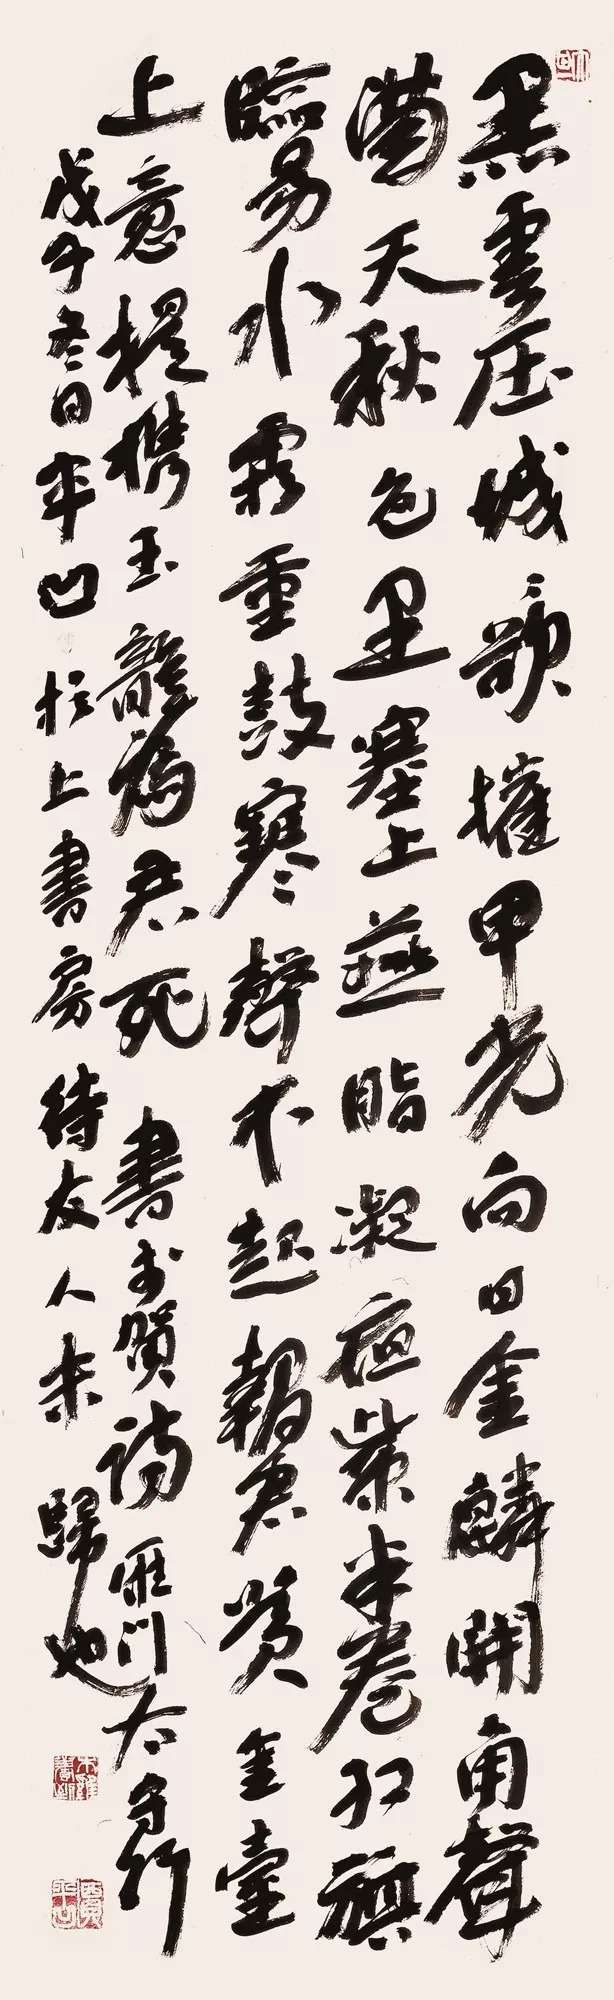 黑雲压城欲摧甲光向日金麟開角聲
满天秋色里塞上燕脂凝夜紫半卷红旗
臨易水霜重鼓寒聲不起報君黄金臺
上意提携玉龍為君死 書李贺诗雁门太守行
戊子冬日平凹於上書房待友人未歸也